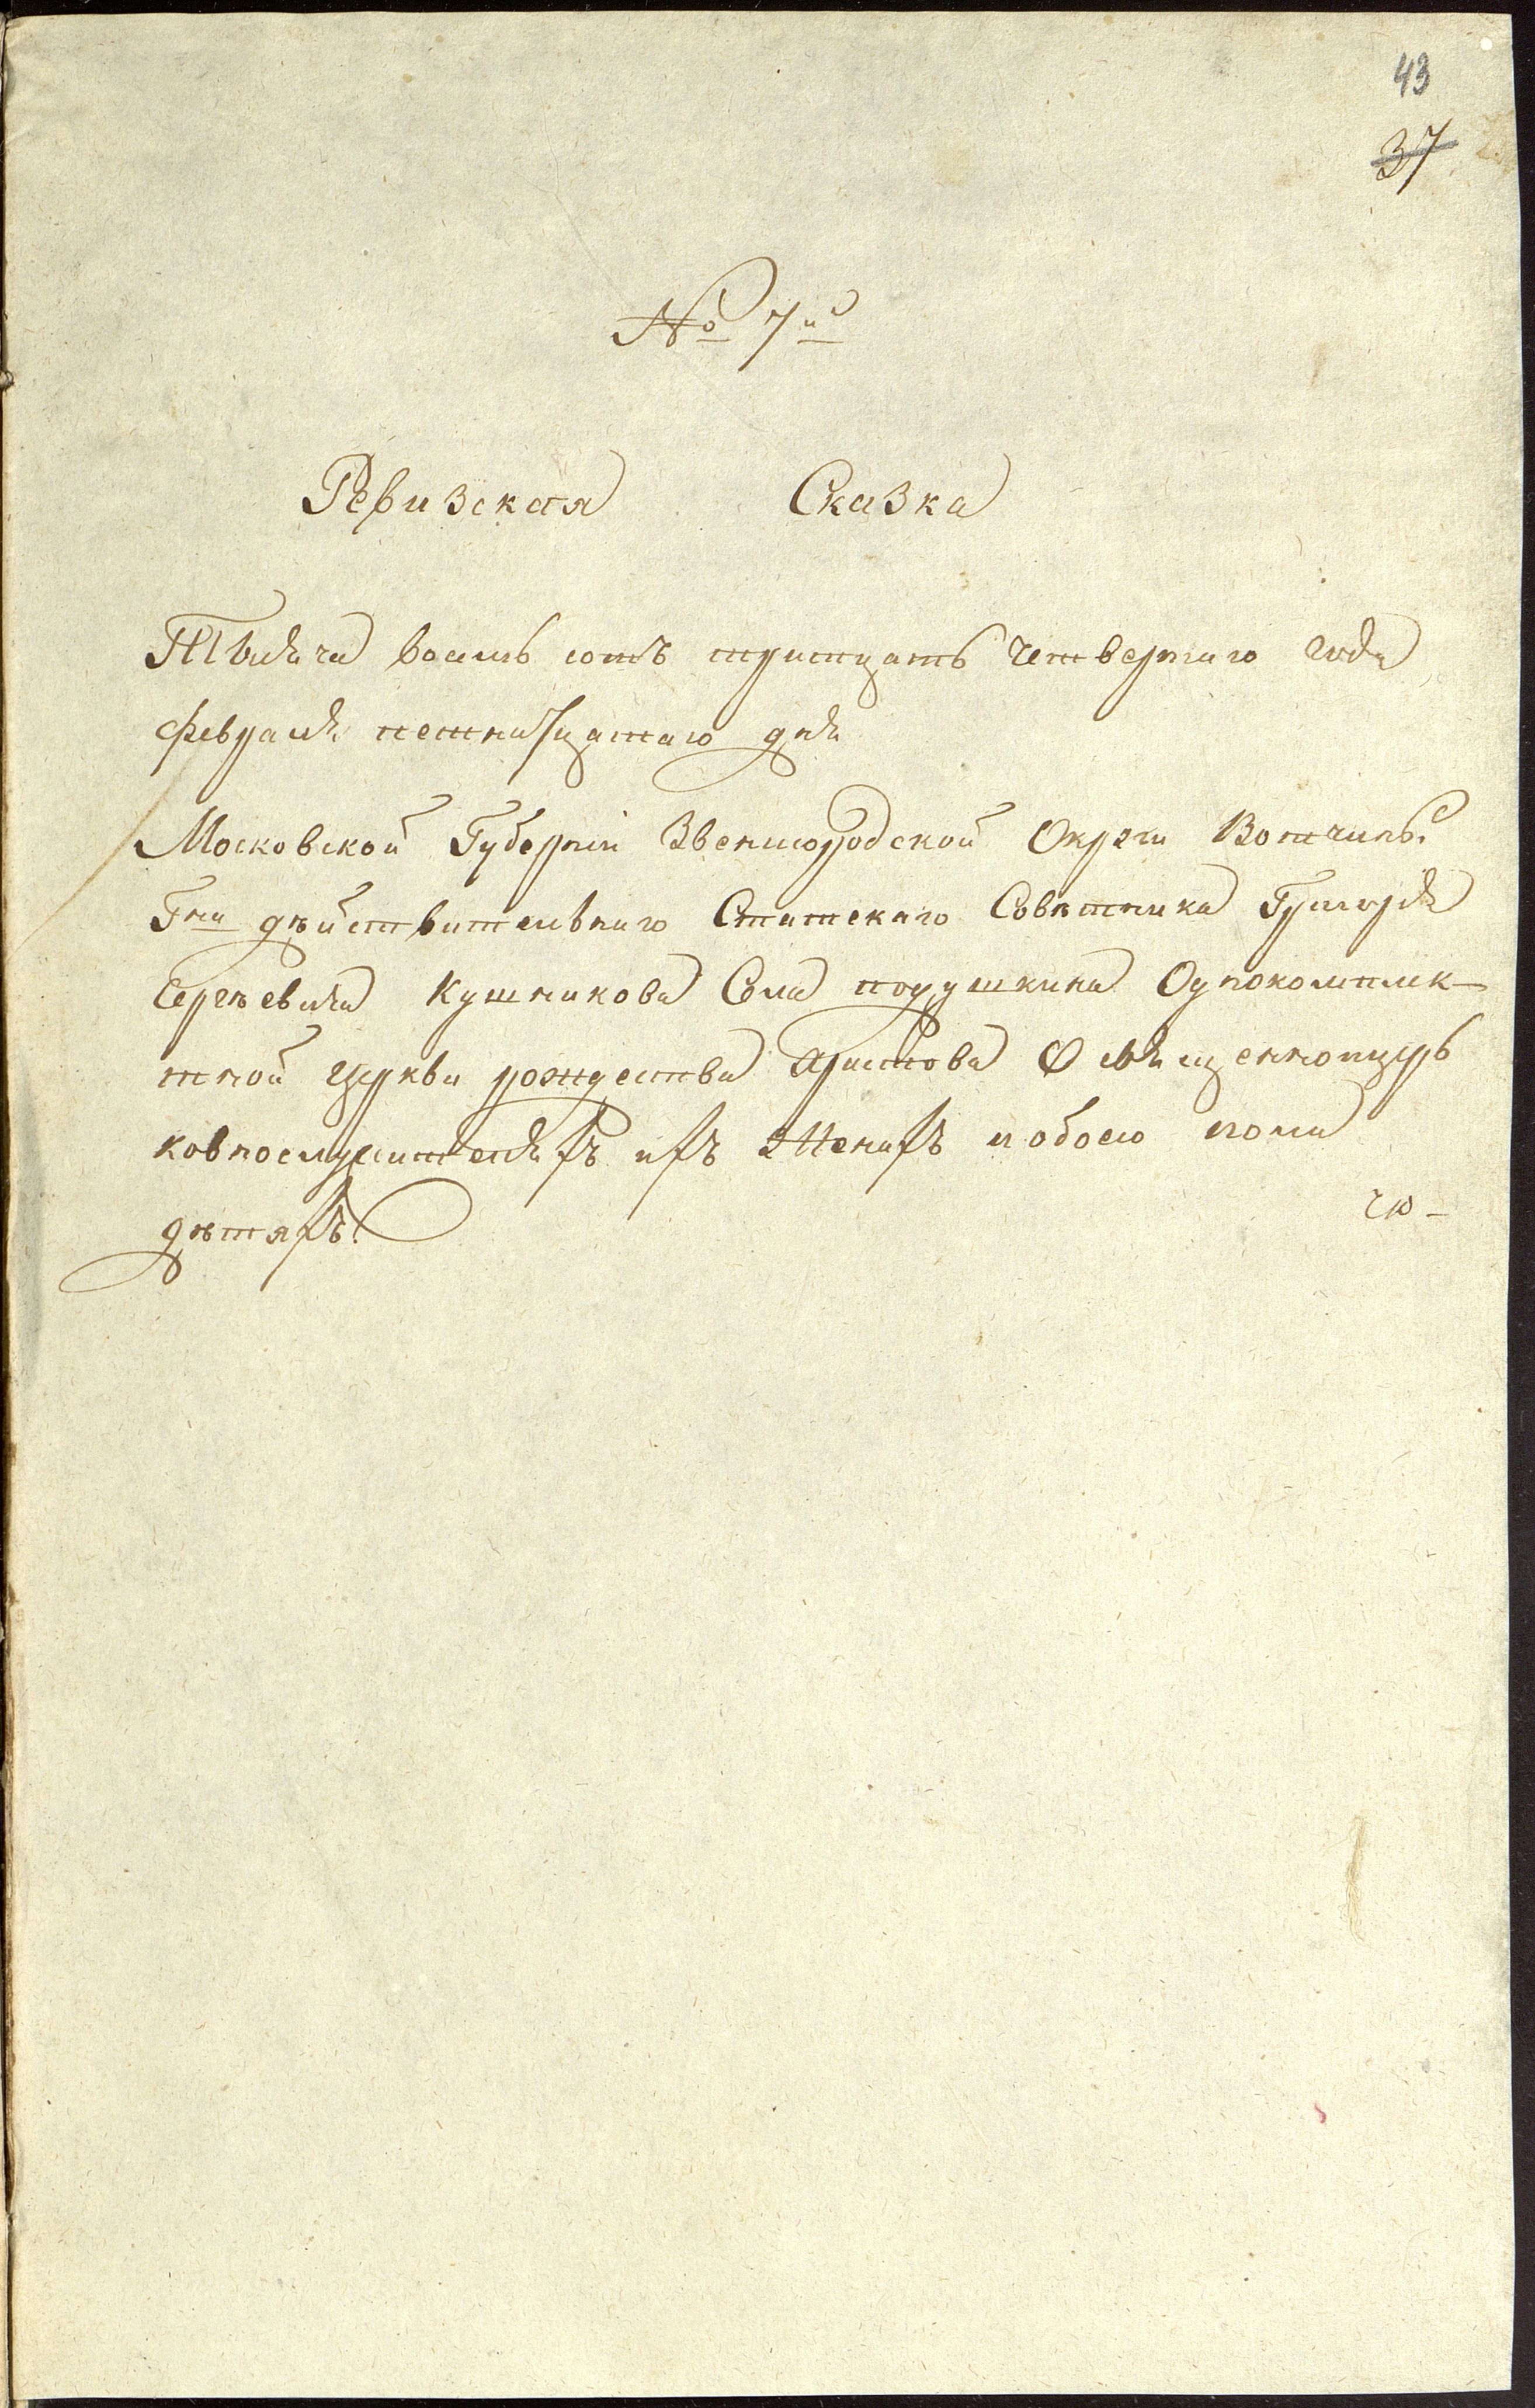 43
37
№ 7й
Ревизская Сказка
Тысяча восемь сотъ тритцать четвертаго года
февраля петнатцатаго дня
Московской Губерніи Звенигородской Округи Вотчины
Гна дѣйствительнаго Статскаго Совѣтника
Сергѣевича Кушникова Села подушкина Однокомплек-
тной церкви рождества Христова О священноцерь
ковнослужителяхъ ихъ женахъ и обоего пола
дѣтяхъ.